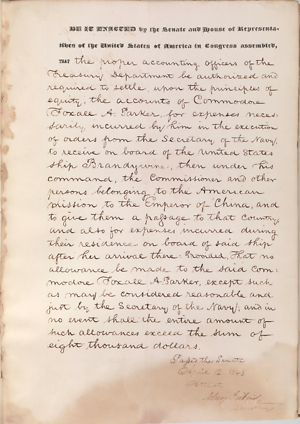 BE IT ENACTED by the Senate and House of Representa-
tives of the United States of America in Congress assembled,
THAT the proper accounting officers of the
Treasury Department be authorized and
required to settle upon the principles of
equity, the accounts of Commodore
Foxall A. Parker, for expenses neces-
sarily incurred by him in the execution
of orders from the Secretary of the Navy,
to receive on board of the United States
ship Brandywine, then under his
command, the Commissioner and other
persons belonging to the American
mission to the Emperor of China, and
to give them a passage to that country
and also for expenses incurred during
their residence on board of said ship
after her arrival there: Provided, That no
allowance be made to the said Com-
modore Foxall A. Parker, except such
as may be considered reasonable and
just by the Secretary of the Navy; and in
no event shall the entire amount of
such allowances exceed the sum of
eight thousand dollars.
Passed the Senate
Attest